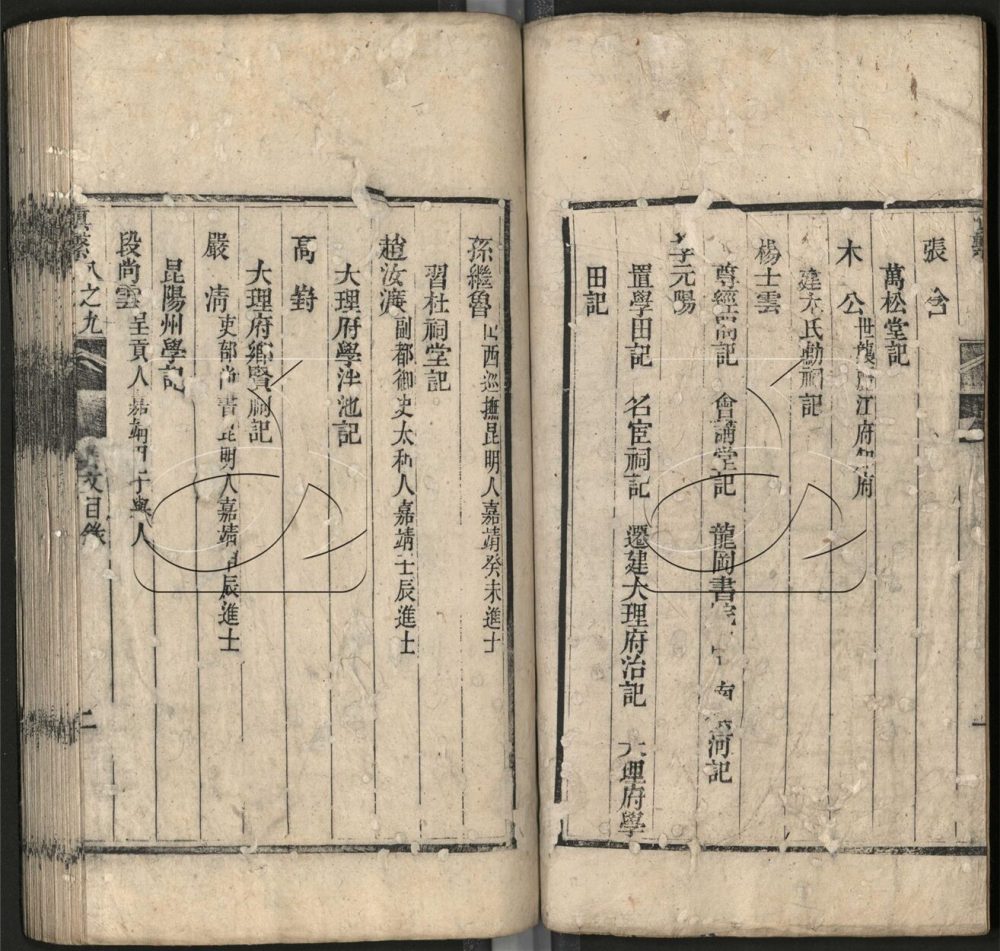 張含
萬松堂記
木公世襲麗江府知府
建木氏勳祠記
楊士雲
尊經閣記 會講堂記 龍岡書院 河記
李元陽
置學田記 名宦祠記 遷建大理府治記 大理府學
田記
孫繼魯山西巡撫昆明人嘉靖癸未進士
習杜祠堂記
趙汝濂副都御史太和人嘉靖壬辰進士
大理府學泮池記
高對
大理府鄉賢祠記
嚴清吏部尚書昆明人嘉靖甲辰進士
昆陽州學記
段尚雲呈貢人嘉靖 子舉人
滇繫 八之九 藝文目錄 二